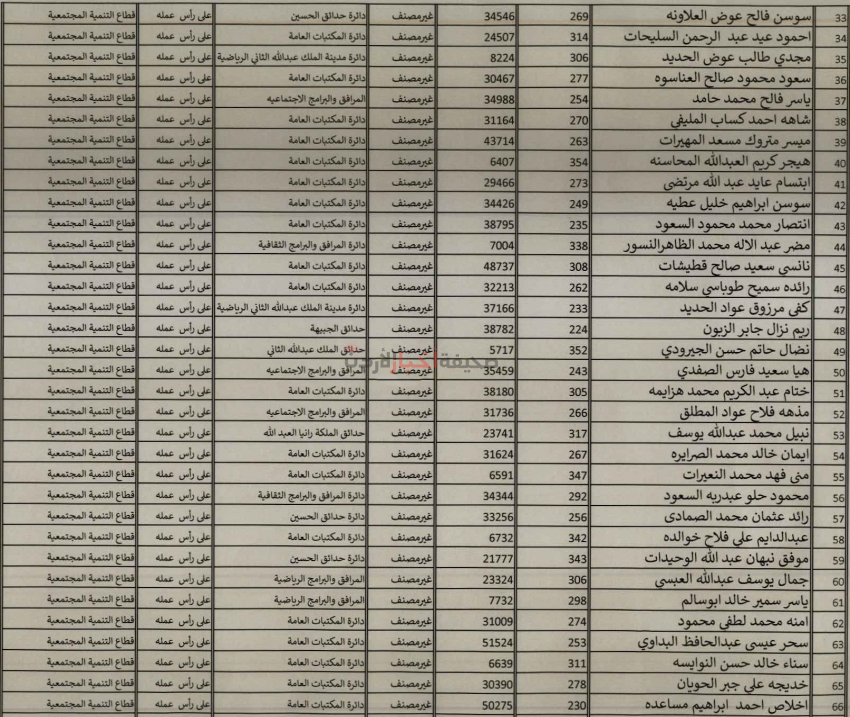 33 سوسن فالح عوض العلاونه 269 34546 غيرمصنف دائرة حدائق الحسين على رأس عمله قطاع التنمية المجتمعية
34 احمود عيد عبد الرحمن السليحات 314 24507 غيرمصنف دائرة المكتبات العامة على رأس عمله قطاع التنمية المجتمعية
35 مجدي طالب عوض الحديد 306 8224 غيرمصنف دائرة مدينة الملك عبدالله الثاني الرياضية على رأس عمله قطاع التنمية المجتمعية
36 سعود محمود صالح العناسوه 277 30467 غيرمصنف دائرة المكتبات العامة على رأس عمله قطاع التنمية المجتمعية
37 ياسر فالح محمد حامد 254 34988 غيرمصنف المرافق والبرامج الاجتماعيه على رأس عمله قطاع التنمية المجتمعية
38 شاهه احمد كساب المليفي 270 31164 غيرمصنف دائرة المكتبات العامة على رأس عمله قطاع التنمية المجتمعية
39 ميسر متروك مسعد المهيرات 263 43714 غيرمصنف دائرة المكتبات العامة على رأس عمله قطاع التنمية المجتمعية
40 هيجر كريم العبدالله المحاسنه 354 6407 غيرمصنف دائرة المكتبات العامة على رأس عمله قطاع التنمية المجتمعية
41 ابتسام عايد عبد الله مرتضى 273 29466 غيرمصنف دائرة المكتبات العامة على رأس عمله قطاع التنمية المجتمعية
42 سوسن ابراهيم خليل عطيه 249 34426 غيرمصنف دائرة المكتبات العامة على رأس عمله قطاع التنمية المجتمعية
43 انتصار محمد محمود السعود 235 38795 غيرمصنف دائرة المكتبات العامة على رأس عمله قطاع التنمية المجتمعية
44 مضر عبد الاله محمد الظاهرالنسور 338 7004 غيرمصنف دائرة المرافق والبرامج الثقافية على رأس عمله قطاع التنمية المجتمعية
45 نانسي سعيد صالح قطيشات 308 48737 غيرمصنف دائرة المكتبات العامة على رأس عمله قطاع التنمية المجتمعية
46 رائده سميح طوباسي سلامه 262 32213 غيرمصنف دائرة المكتبات العامة على رأس عمله قطاع التنمية المجتمعية
47 كفى مرزوق عواد الحديد 233 37166 غيرمصنف دائرة مدينة الملك عبدالله الثاني الرياضية على رأس عمله قطاع التنمية المجتمعية
48 ريم نزال جابر الزبون 224 38782 غيرمصنف حدائق الجبيهة على رأس عمله قطاع التنمية المجتمعية
49 نضال حاتم حسن الجيرودي 352 5717 غيرمصنف حدائق الملك عبدالله الثاني على رأس عمله قطاع التنمية المجتمعية
صحيفة أخبار الأردن
50 هيا سعيد فارس الصفدي 243 35459 غيرمصنف المرافق والبرامج الاجتماعيه على رأس عمله قطاع التنمية المجتمعية
51 ختام عبد الكريم محمد هزايمه 305 38180 غيرمصنف دائرة المكتبات العامة على رأس عمله قطاع التنمية المجتمعية
52 مذهه فلاح عواد المطلق 266 31736 غيرمصنف المرافق والبرامج الاجتماعيه على رأس عمله قطاع التنمية المجتمعية
53 نبيل محمد عبدالله يوسف 317 23741 غيرمصنف حدائق الملكة رانيا العبد الله على رأس عمله قطاع التنمية المجتمعية
54 ايمان خالد محمد الصرايره 267 31624 غيرمصنف دائرة المكتبات العامة على رأس عمله قطاع التنمية المجتمعية
55 منى فهد محمد النعيرات 347 6591 غيرمصنف دائرة المكتبات العامة على رأس عمله قطاع التنمية المجتمعية
56 محمود حلو عبدربه السعود 292 34344 غيرمصنف دائرة المرافق والبرامج الثقافية على رأس عمله قطاع التنمية المجتمعية
57 رائد عثمان محمد الصمادى 256 33256 غيرمصنف دائرة حدائق الحسين على رأس عمله قطاع التنمية المجتمعية
58 عبدالدايم علي فلاح خوالده 342 6732 غيرمصنف دائرة المكتبات العامة على رأس عمله قطاع التنمية المجتمعية
59 موفق نبهان عبد الله الوحيدات 343 21777 غيرمصنف دائرة حدائق الحسين على رأس عمله قطاع التنمية المجتمعية
60 جمال يوسف عبدالله العبسي 306 23324 غيرمصنف المرافق والبرامج الرياضية على رأس عمله قطاع التنمية المجتمعية
61 ياسر سمير خالد ابوسالم 298 7732 غيرمصنف المرافق والبرامج الرياضية على رأس عمله قطاع التنمية المجتمعية
62 امنه محمد لطفي محمود 274 31009 غيرمصنف دائرة المكتبات العامة على رأس عمله قطاع التنمية المجتمعية
63 سحر عيسى عبدالحافظ البداوي 253 51524 غيرمصنف دائرة المكتبات العامة على رأس عمله قطاع التنمية المجتمعية
64 سناء خالد حسن النوايسه 311 6639 غيرمصنف دائرة المكتبات العامة على رأس عمله قطاع التنمية المجتمعية
65 خديجه علي جبر الحويان 278 30390 غيرمصنف دائرة المكتبات العامة على رأس عمله قطاع التنمية المجتمعية
66 اخلاص احمد ابراهيم مساعده 230 50275 غيرمصنف دائرة المكتبات العامة على رأس عمله قطاع التنمية المجتمعية